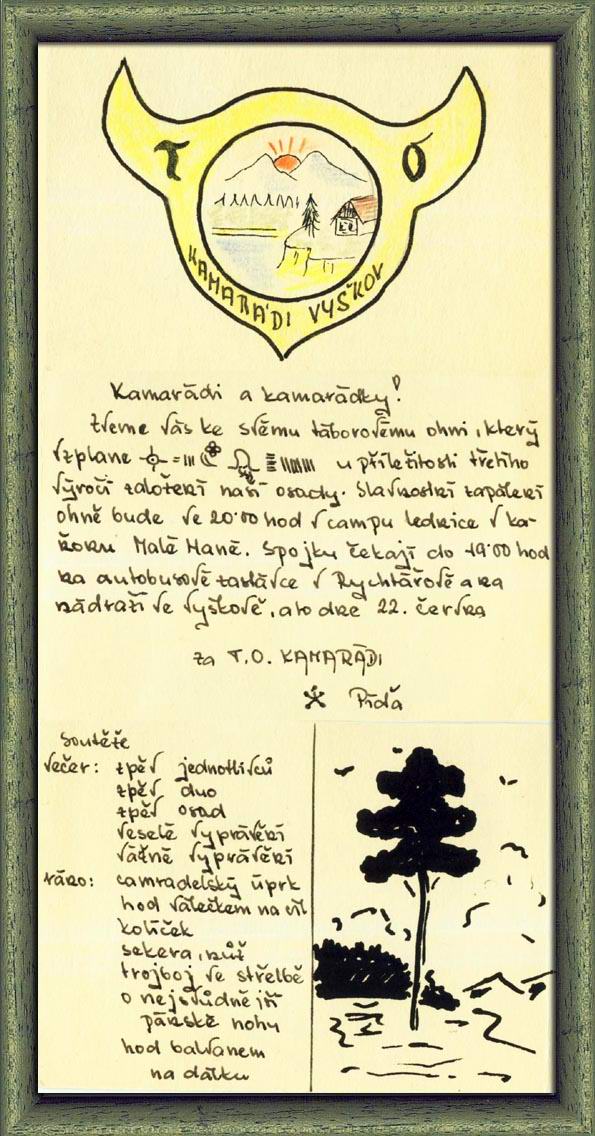 T O
KAMARÁDI VYŠKOV
Kamarádi a kamarádky!
Zveme vás ke svému táborovému ohni, který
vzplane u příležitosti třetího
výročí založení naší osady. Slavnostní zapálení
ohně bude ve 20.00 hod v campu lednice v ka-
ňonu Malé Hané. Spojky čekají do 19.00 hod
na autobusové zastávce v Rychtářově a na
nádraží ve Vyškově, a to dne 22. června
za T.O. KAMARÁDI
Píďa
Soutěže
večer: zpěv jednotlivců
zpěv duo
zpěv osad
veselé vyprávění
vážné vyprávění
ráno: camradelský úprk
hod válečkem na
kolíček
sekera, nůž
trojboj ve střelbě
o nejsvůdnější
pánské nohy
hod balvanem
na dálku